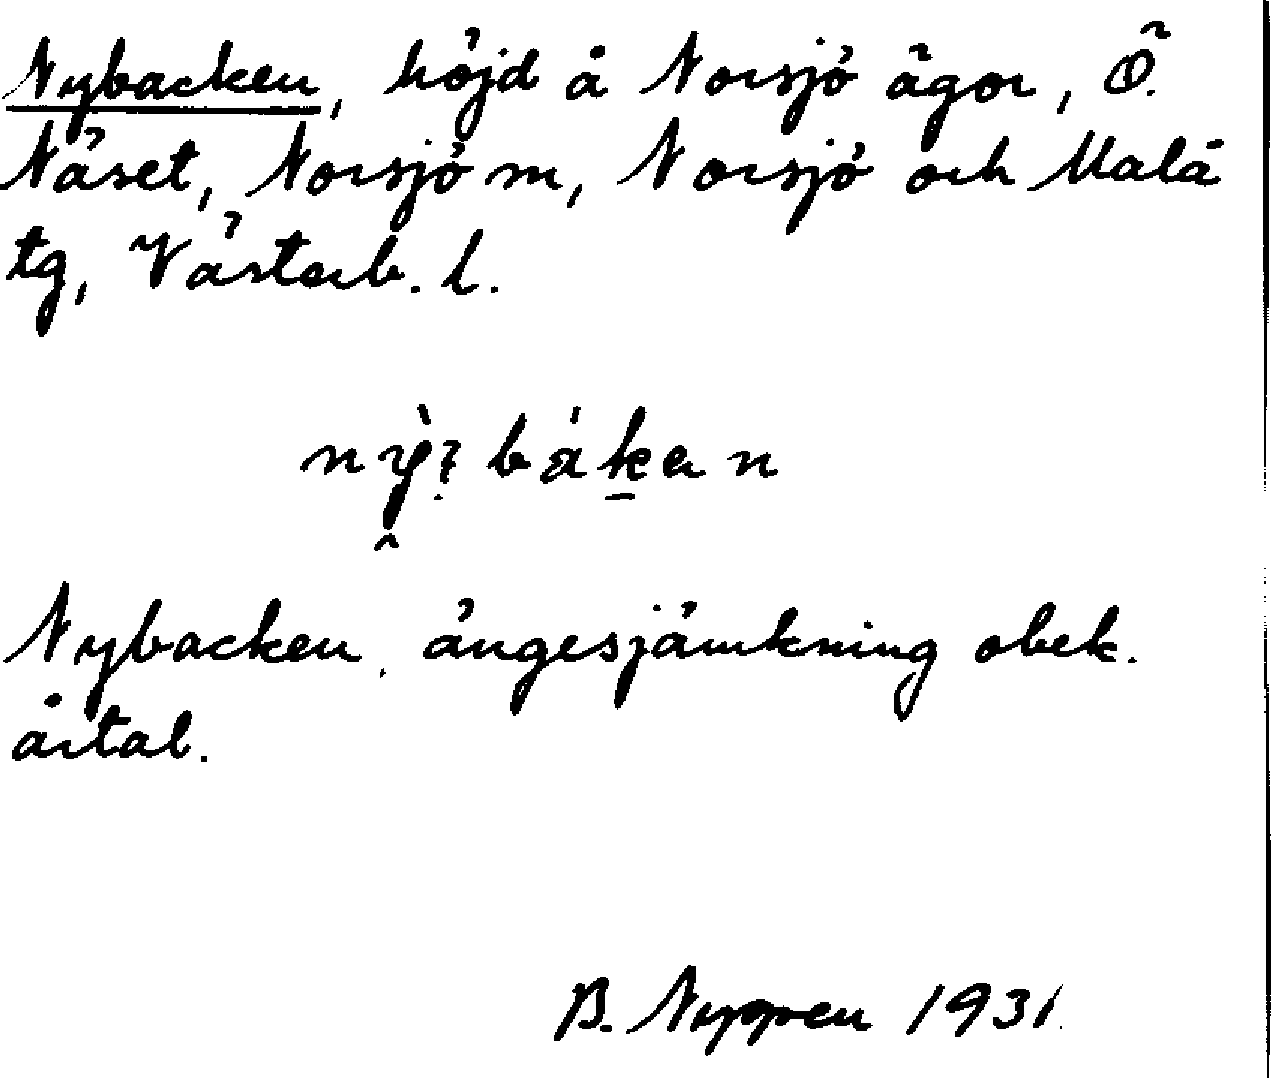 Nybacken, höjd å Norsjö ägor, Ö.
Näset, Norsjö sn, Norsjö och Malå
tg, Västerb. l.
Nybacken, ängesjämkning obek.
årtal.
B. Nygren 1931